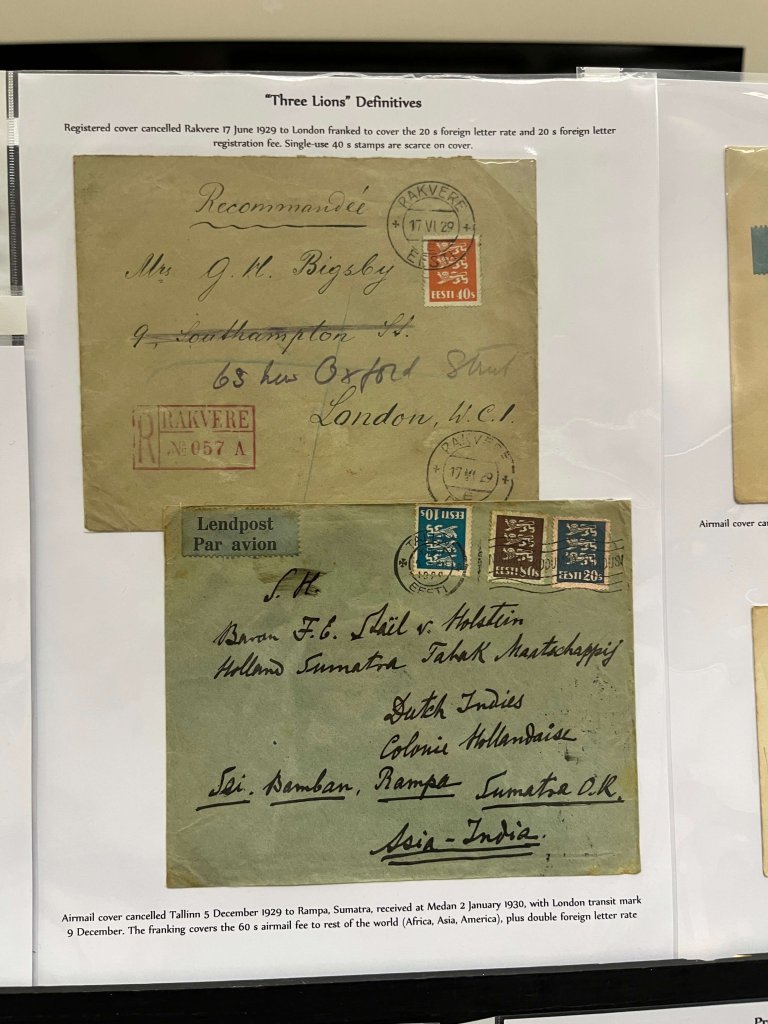 "Three Lions" Definitives
Registered cover cancelled Rakvere 17 June 1929 to London franked to cover the 20 s foreign letter rate and 20 s foreign letter
registration fee. Single-use 40 s stamps are scarce on cover.
Recommandée
RAKVERE
17 VI 29
EESTI
EESTI 40s
Mrs G. H. Bigsby
9, Southampton St.
63 New Oxford Street
London, W.C.1.
R RAKVERE
№ 057 A
RAKVERE
17 VI 29
Lendpost
Par avion
EESTI 10s
EESTI 80s
EESTI 20s
EESTI
S. H.
Baron F. E. Staël v. Holstein
Holland Sumatra Tabak Maatschappij
Dutch Indies
Colonie Hollandaise
Sei. Bamban, Rampa Sumatra O.K.
Asia - India.
Airmail cover cancelled Tallinn 5 December 1929 to Rampa, Sumatra, received at Medan 2 January 1930, with London transit mark
9 December. The franking covers the 60 s airmail fee to rest of the world (Africa, Asia, America), plus double foreign letter rate
Airmail cover